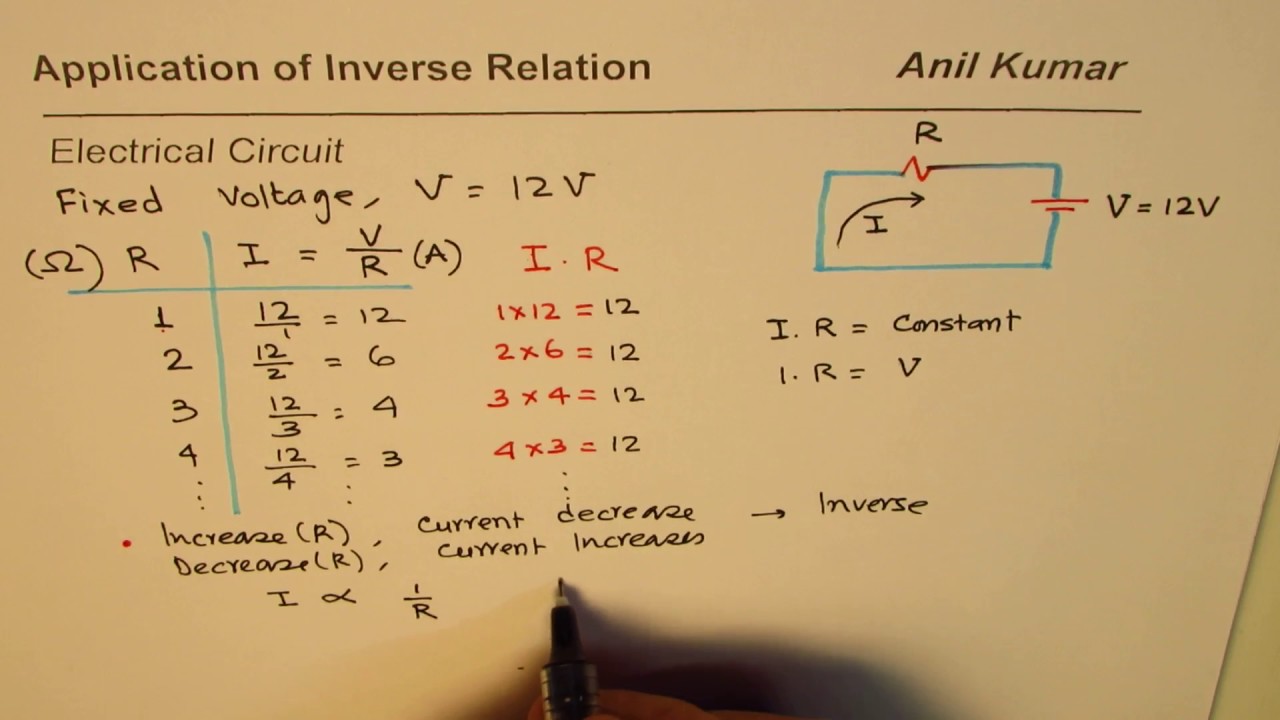 Application of Inverse Relation
Anil Kumar
Electrical Circuit
Fixed Voltage, V = 12V
(Ω) R I = V/R (A) I . R
1 12/1 = 12 1 x 12 = 12
2 12/2 = 6 2 x 6 = 12
3 12/3 = 4 3 x 4 = 12
4 12/4 = 3 4 x 3 = 12
⋮ ⋮ ⋮
• Increase (R), Current decrease → Inverse
Decrease (R), Current Increases
I ∝ 1/R
R
I
V = 12V
I. R = Constant
I. R = V